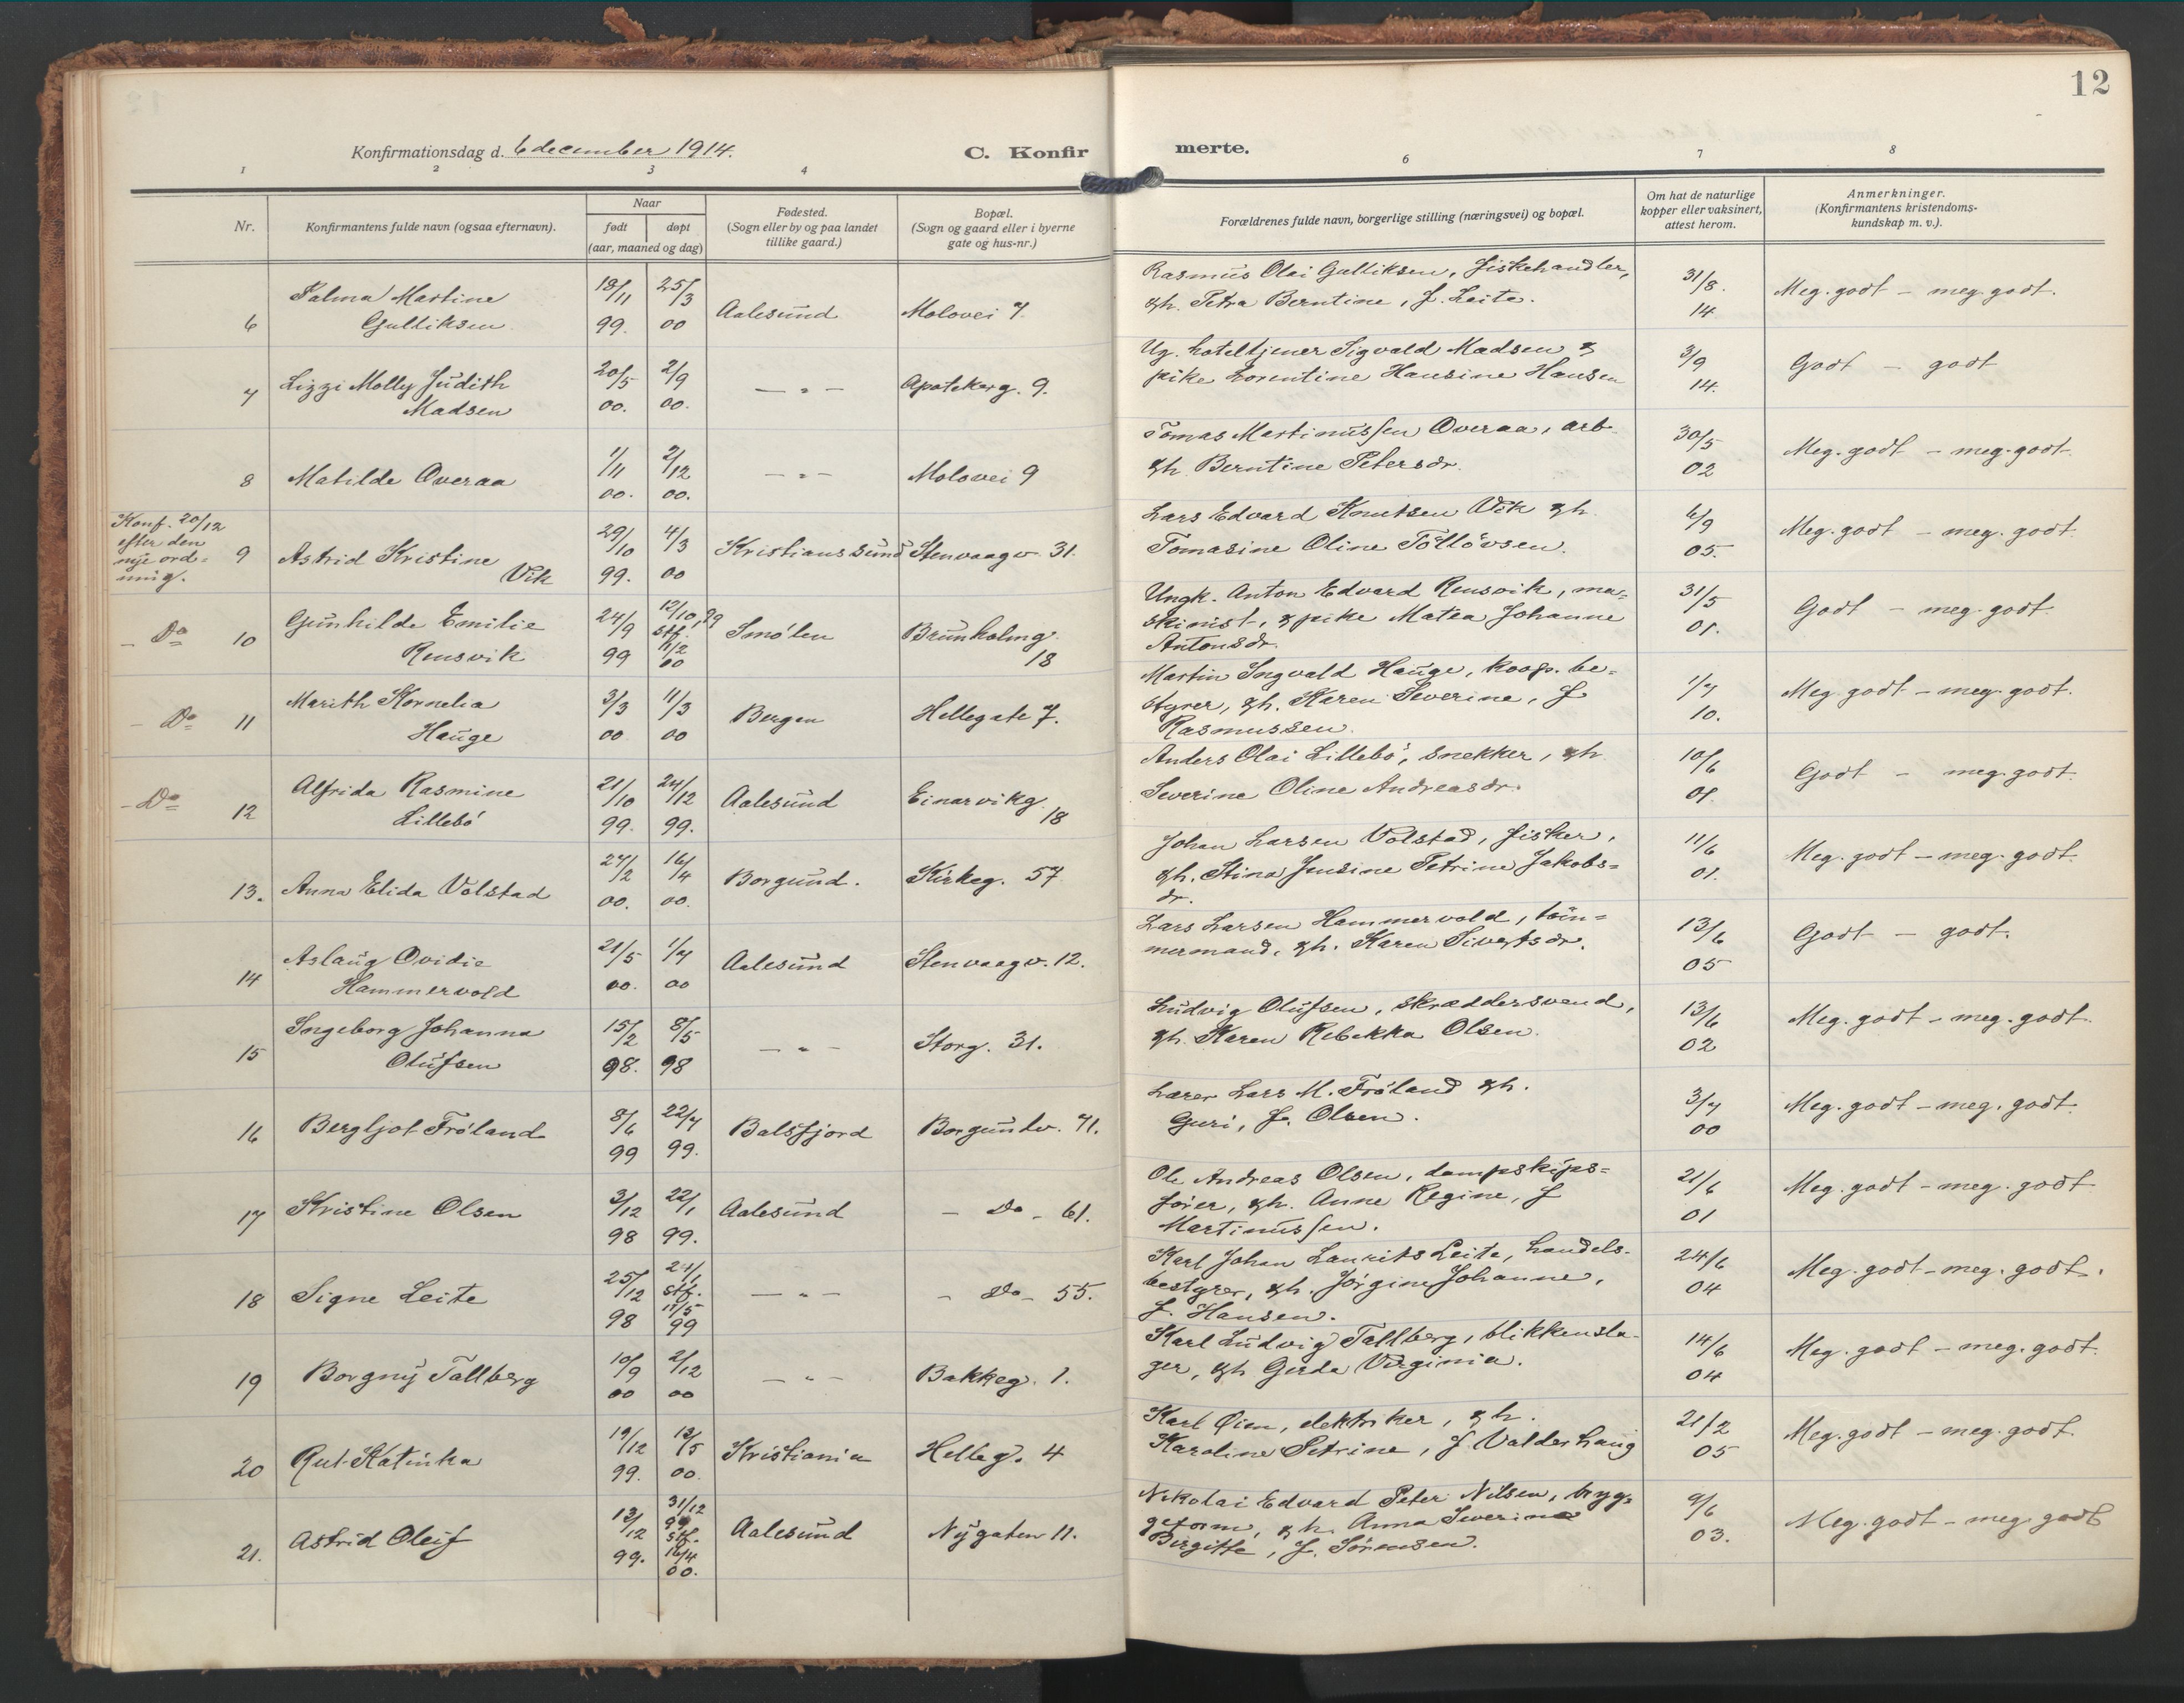 12
Konfirmationsdag d. 6 december 1914.
C. Konfir
merte.
1 2 3 4 6 7 8
Nr.
Konfirmantens fulde navn (ogsaa efternavn).
Naar
født døpt
(aar, maaned og dag)
Fødested.
(Sogn eller by og paa landet
tillike gaard.)
Bopæl.
(Sogn og gaard eller i byerne
gate og hus-nr.)
Forældrenes fulde navn, borgerlige stilling (næringsvei) og bopæl.
Om hat de naturlige
kopper eller vaksinert,
attest herom.
Anmerkninger.
(Konfirmantens kristendoms-
kundskap m. v.).
6 Palma Martine
Gulliksen
18/11 99. 25/3 00
Aalesund
Molovei 7.
Rasmus Olai Gulliksen, fiskehandler,
& h. Petra Berntine, f. Leite.
31/8. 14
Meg. godt - meg. godt.
7 Lizzi Molly Judith
Madsen
20/5 00. 2/9 00.
— " —
Apotekerg. 9.
Ug. hoteltjener Sigvald Madsen &
pike Lorentine Hansine Hansen
3/9 14.
Godt - godt
8 Matilde Overaa
1/11 00. 2/12 00.
— " —
Molovei 9
Tomas Martinussen Overaa, arb.
& h. Berntine Petersdr.
30/5 02
Meg. godt - meg. godt.
Konf. 20/12
efter den
nye ord=
ning.
9 Astrid Kristine
Vik
29/10 99. 4/3 00
Kristianssund
Stenvaagv. 31.
Lars Edvard Knutsen Vik & h.
Tomasine Oline Tollövsen.
6/9 05.
Meg. godt - meg. godt.
- Do 10 Gunhilde Emilie
Rensvik
24/9 99 12/10, 99
stf. 11/2 00
Smölen
Brunholmg.
18
Ungk. Anton Edvard Rensvik, ma=
skinist, & pike Matea Johanne
Antonsdr.
31/5 01.
Godt - meg. godt.
- Do 11 Marith Kornelia
Hauge
3/3 00 11/3 00
Bergen
Hellegate 7.
Martin Ingvald Hauge, koop. be=
styrer, & h. Karen Severine, f
Rasmussen.
1/7 10.
Meg. godt - meg. godt.
- Do 12 Alfrida Rasmine
Lillebö
21/10 99. 24/12 99.
Aalesund
Einarvikg.
18
Anders Olai Lillebö, snekker, & h
Severine Oline Andreasdr.
10/6 01.
Godt - meg. godt.
13. Anna Elida Volstad
27/2 00. 16/4 00.
Borgund.
Kirkeg. 57
Johan Larsen Volstad, fisker,
& h. Stina Jensine Petrine Jakobs=
dr.
11/6 01.
Meg. godt - meg. godt.
14 Aslaug Ovidie
Hammervold
21/5 00. 1/7 00
Aalesund
Stenvaagv. 12.
Lars Larsen Hammervold, töm=
mermand, & h. Karen Sivertsdr.
13/6 05
Godt - godt.
15 Ingeborg Johanna
Olufsen
15/2 98. 8/5 98
— " —
Storg. 31.
Ludvig Olufsen, skræddersvend,
& h. Karen Rebekka Olsen.
13/6 02
Meg. godt - meg. godt.
16 Bergljot Fröland
8/6 99 22/7 99.
Balsfjord
Borgundv. 71.
Lærer Lars M. Fröland & h.
Guri, f. Olsen.
3/7 00
Meg. godt - meg. godt.
17 Kristine Olsen
3/12 98 22/1 99.
Aalesund
- Do - 61.
Ole Andreas Olsen, dampskips=
förer, & h. Anne Regine, f
Martinussen.
21/6 01
Meg. godt - meg. godt
18 Signe Leite
25/12 98
stf. 99
— " —
- Do - 55.
Karl Johan Laurits Leite, handels-
bestyrer, & h. Jörgine Johanne,
f. Hansen.
24/6 04
Meg. godt - meg. godt.
19 Borgny Tallberg
10/9 00 2/12 00
— " —
Bakkeg. 1.
Karl Ludvig Tallberg, blikkensla-
ger, & h Gerda Virginia.
14/6 04
Meg. godt - meg. godt.
20 Rut Katinka
19/12 99. 13/5 00.
Kristiania
Helleg. 4
Karl Øien, elektriker, & h.
Karoline Petrine, f. Valderhaug
21/2 05
Meg. godt - meg. godt.
21. Astrid Oleif
13/12 99. 31/12 99
stf. 16/4 00.
Aalesund
Nygaten 11.
Nikolai Edvard Peter Nilsen, bryg=
geform, & h. Anna Severine
Birgitte, f. Sörensen.
9/6 03.
Meg. godt - meg. godt